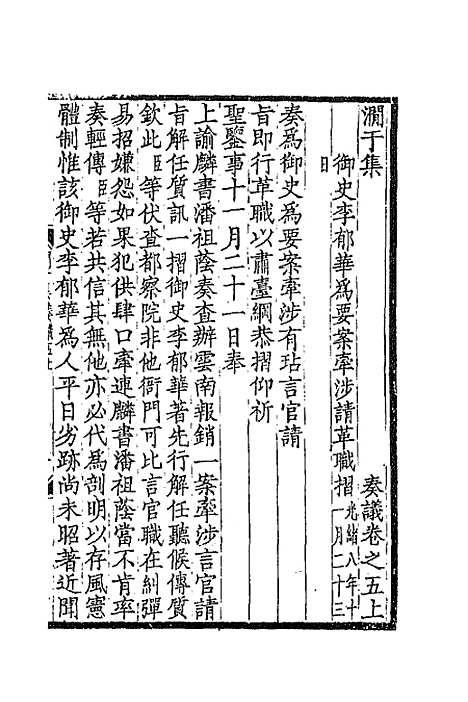 澗于集　奏議卷之五上
御史李郁華爲要案牽涉請革職摺光緒八年十一月二十三日
奏爲御史爲要案牽涉有玷言官請
旨即行革職以肅臺綱恭摺仰祈
聖鑒事十一月二十一日奉
上諭麟書潘祖蔭奏查辦雲南報銷一案牽涉言官請
旨解任質訊一摺御史李郁華著先行解任聽候傳質
欽此臣等伏查都察院非他衙門可比言官職在糾彈
易招嫌怨如果犯供肆口牽連麟書潘祖蔭當不肯率
奏輕傳臣等若共信其無他亦必代爲剖明以存風憲
體制惟該御史李郁華爲人平日劣跡尚未昭著近聞